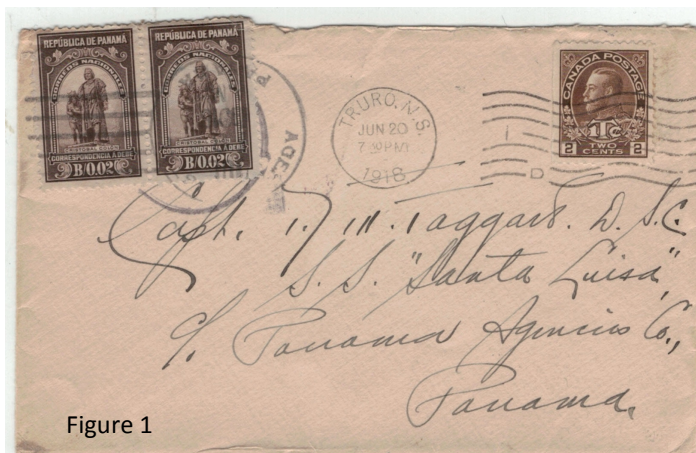 REPÚBLICA DE PANAMÁ
CORREOS NACIONALES
CORRESPONDENCIA A DEBE
B/0.02
REPÚBLICA DE PANAMÁ
CORREOS NACIONALES
CORRESPONDENCIA A DEBE
B/0.02
AGE
TRURO, N.S.
JUN 20
PM
1918
CANADA POSTAGE
1Tc
TWO
2 CENTS 2
Capt. Taggart. D.S.C.
S.S. "Santa Luisa",
c/o Panama Agencies Co.,
Panama.
Figure 1